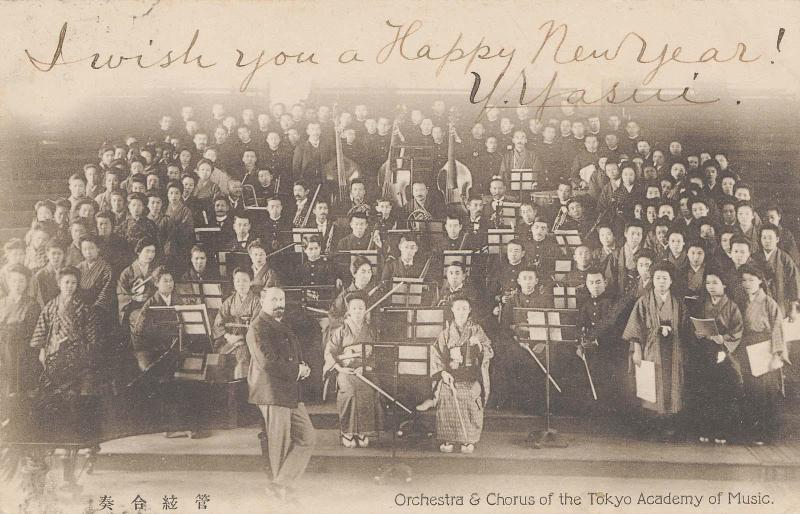 I wish you a Happy New Year!
Y. Yasui.
奏合絃管
Orchestra & Chorus of the Tokyo Academy of Music.